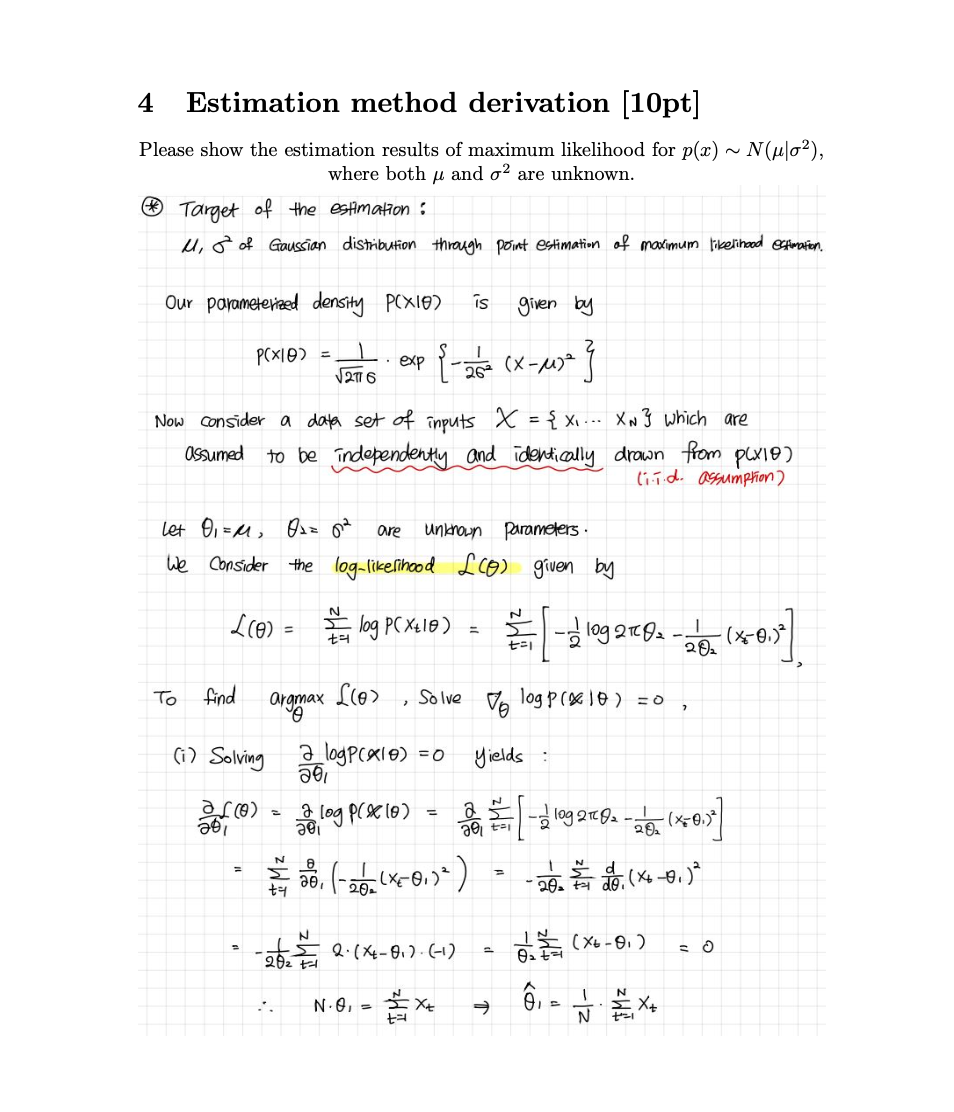 4 Estimation method derivation [10pt]
Please show the estimation results of maximum likelihood for p(x) ∼ N(μ|σ²),
where both μ and σ² are unknown.
⊛ Target of the estimation :
μ, σ² of Gaussian distribution through point estimation of maximum likelihood estimation.
Our parameterized density P(X|θ) is given by
P(X|θ) = 1/(√2π σ) · exp { -1/(2σ²) (X-μ)² }
Now consider a data set of inputs X = { X₁ ... X_N } which are
assumed to be independently and identically drawn from p(X|θ)
(i.i.d. assumption)
Let θ₁ = μ, θ₂ = σ² are unknown parameters.
We Consider the log-likelihood ℒ(θ) given by
ℒ(θ) = Σ_{t=1}^{N} log P(X_t|θ) = Σ_{t=1}^{N} [ -1/2 log 2πθ₂ - 1/(2θ₂) (X_t-θ₁)² ],
To find argmax_θ ℒ(θ) , Solve ∇_θ log P(X|θ) = 0 ,
(i) Solving ∂/∂θ₁ log P(X|θ) = 0 yields :
∂/∂θ₁ ℒ(θ) = ∂/∂θ₁ log P(X|θ) = ∂/∂θ₁ Σ_{t=1}^{N} [ -1/2 log 2πθ₂ - 1/(2θ₂) (X_t-θ₁)² ]
= Σ_{t=1}^{N} ∂/∂θ₁ ( -1/(2θ₂) (X_t-θ₁)² ) = -1/(2θ₂) Σ_{t=1}^{N} d/dθ₁ (X_t-θ₁)²
= -1/(2θ₂) Σ_{t=1}^{N} 2·(X_t-θ₁)·(-1) = 1/θ₂ Σ_{t=1}^{N} (X_t-θ₁) = 0
∴ N·θ₁ = Σ_{t=1}^{N} X_t ⇒ θ̂₁ = 1/N · Σ_{t=1}^{N} X_t